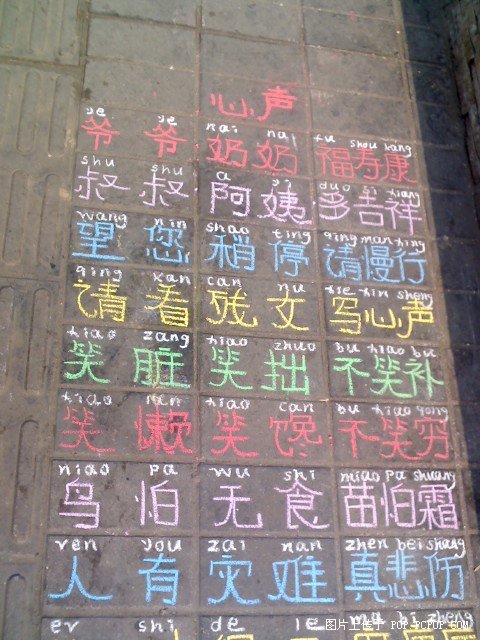 心声
ye ye nai nai fu shou kang
爷爷 奶奶 福寿康
shu shu a yi duo ji xiang
叔叔 阿姨 多吉祥
wang nin shao ting qing man xing
望您 稍停 请慢行
qing kan can nu xie xin sheng
请看 残女 写心声
xiao zang xiao zhuo bu xiao bu
笑脏 笑拙 不笑补
xiao lan xiao can bu xiao qong
笑懒 笑馋 不笑穷
niao pa wu shi miao pa shuang
鸟怕 无食 苗怕霜
ren you zai nan zhen bei shang
人有 灾难 真悲伤
er shi de le
图片上传于 POP.PCPOP.COM